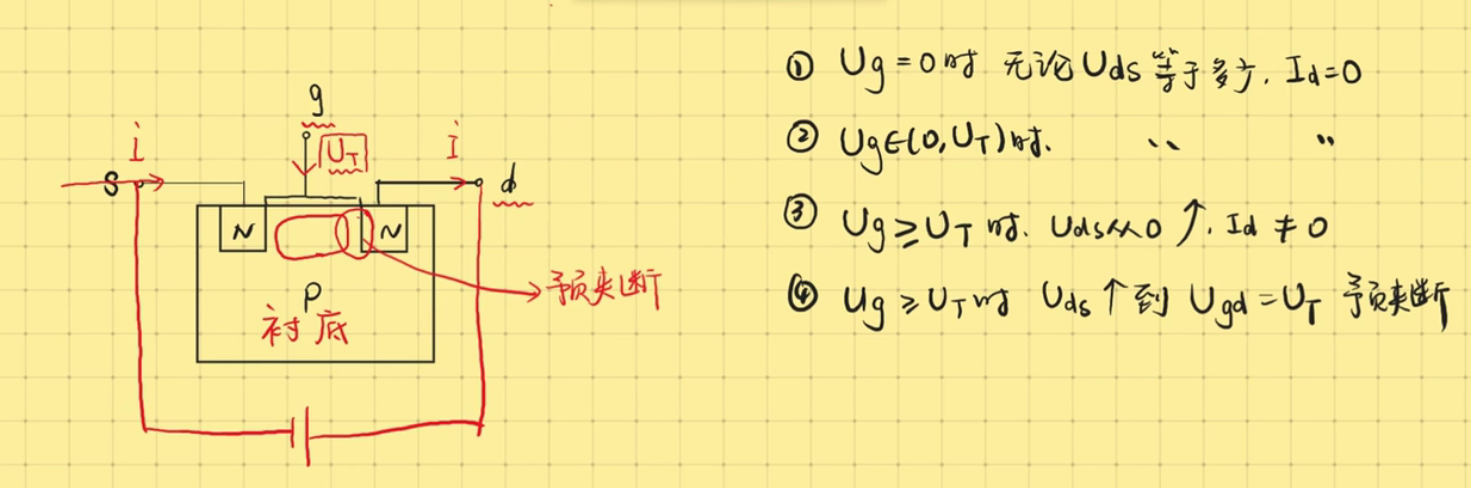 g
i
U_T
i
s
d
N
N
P
衬底
预夹断
① Ug=0时 无论Uds等于多少, Id=0
② Ug∈(0,U_T)时. 〃 〃
③ Ug≥U_T时. Uds从0↑, Id≠0
④ Ug≥U_T时 Uds↑到 Ugd=U_T 预夹断